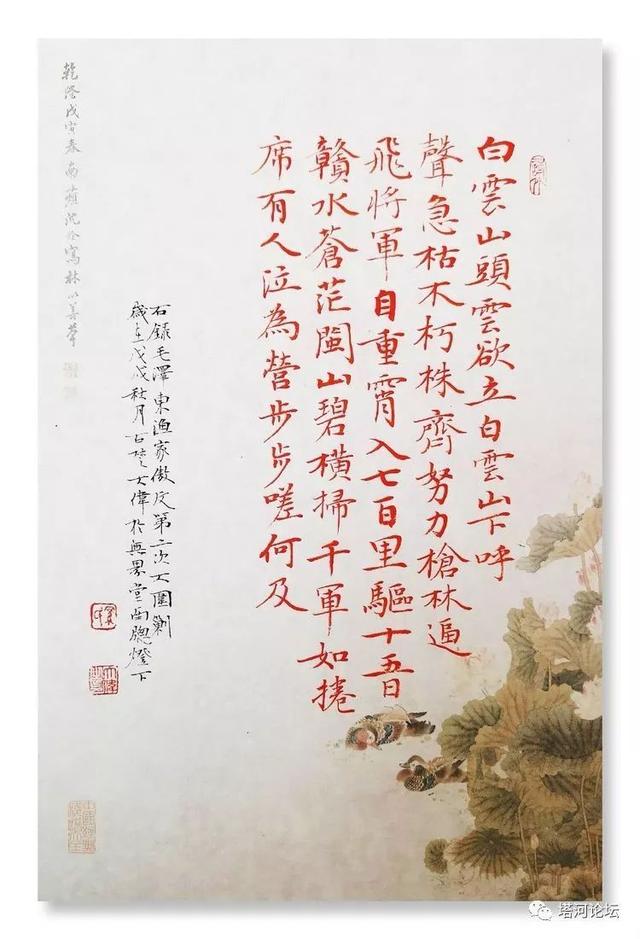 白雲山頭雲欲立白雲山下呼
聲急枯木朽株齊努力槍林逼
飛將軍自重霄入七百里驅十五日
贛水蒼茫閩山碧橫掃千軍如捲
席有人泣為營步步嗟何及
右録毛澤東漁家傲反第二次大圍剿
歲在戊戌秋月古楚大偉於無堂南牕燈下
乾隆戊寅春南蘋沈銓寫林以善筆
塔河论坛